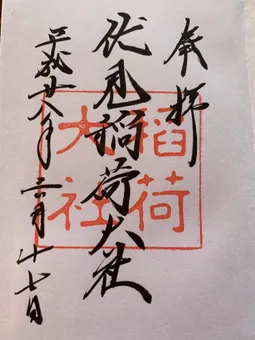 奉拝
伏見稲荷大社
稲荷
大社
平成廿八年三月十七日